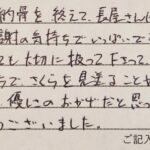 納骨を終えて、長屋さんに
謝の気持ちでいっぱいで
ても大切に扱って下さって
ちでさくらを見送ることが
優しさのおかげだと思っ
うございました。
ご記入